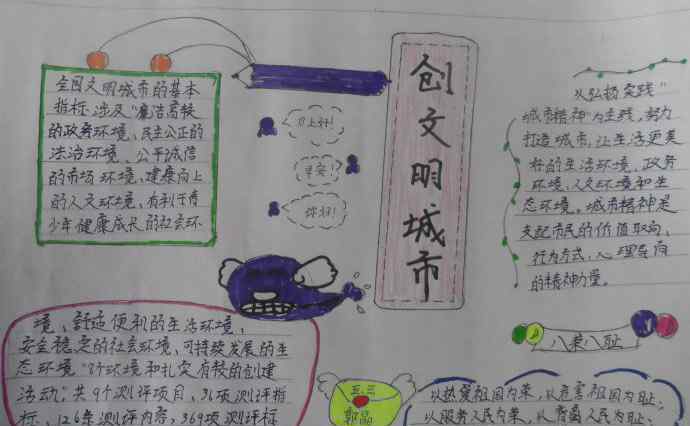 全国文明城市的基本
指标涉及"廉洁高效
的政务环境、民主公正的
法治环境、公平诚信
的市场环境、健康向上
的人文环境、有利于青
少年健康成长的社会环
境、舒适便利的生活环境、
安全稳定的社会环境、可持续发展的生
态环境"8个环境和扎实有效的创建
活动。共9个测评项目、36项测评指
标、126条测评内容、369项测评标
早上好!
早安!
你好!
创文明城市
以弘扬实践"
城市精神"为主线,努力
打造城市,让生活更美
好的生活环境、政务
环境、人文环境和生
态环境。城市精神是
支配市民的价值取向、
行为方式、心理导向
的精神力量。
八荣八耻
以热爱祖国为荣、以危害祖国为耻、
以服务人民为荣、以背离人民为耻、
五三